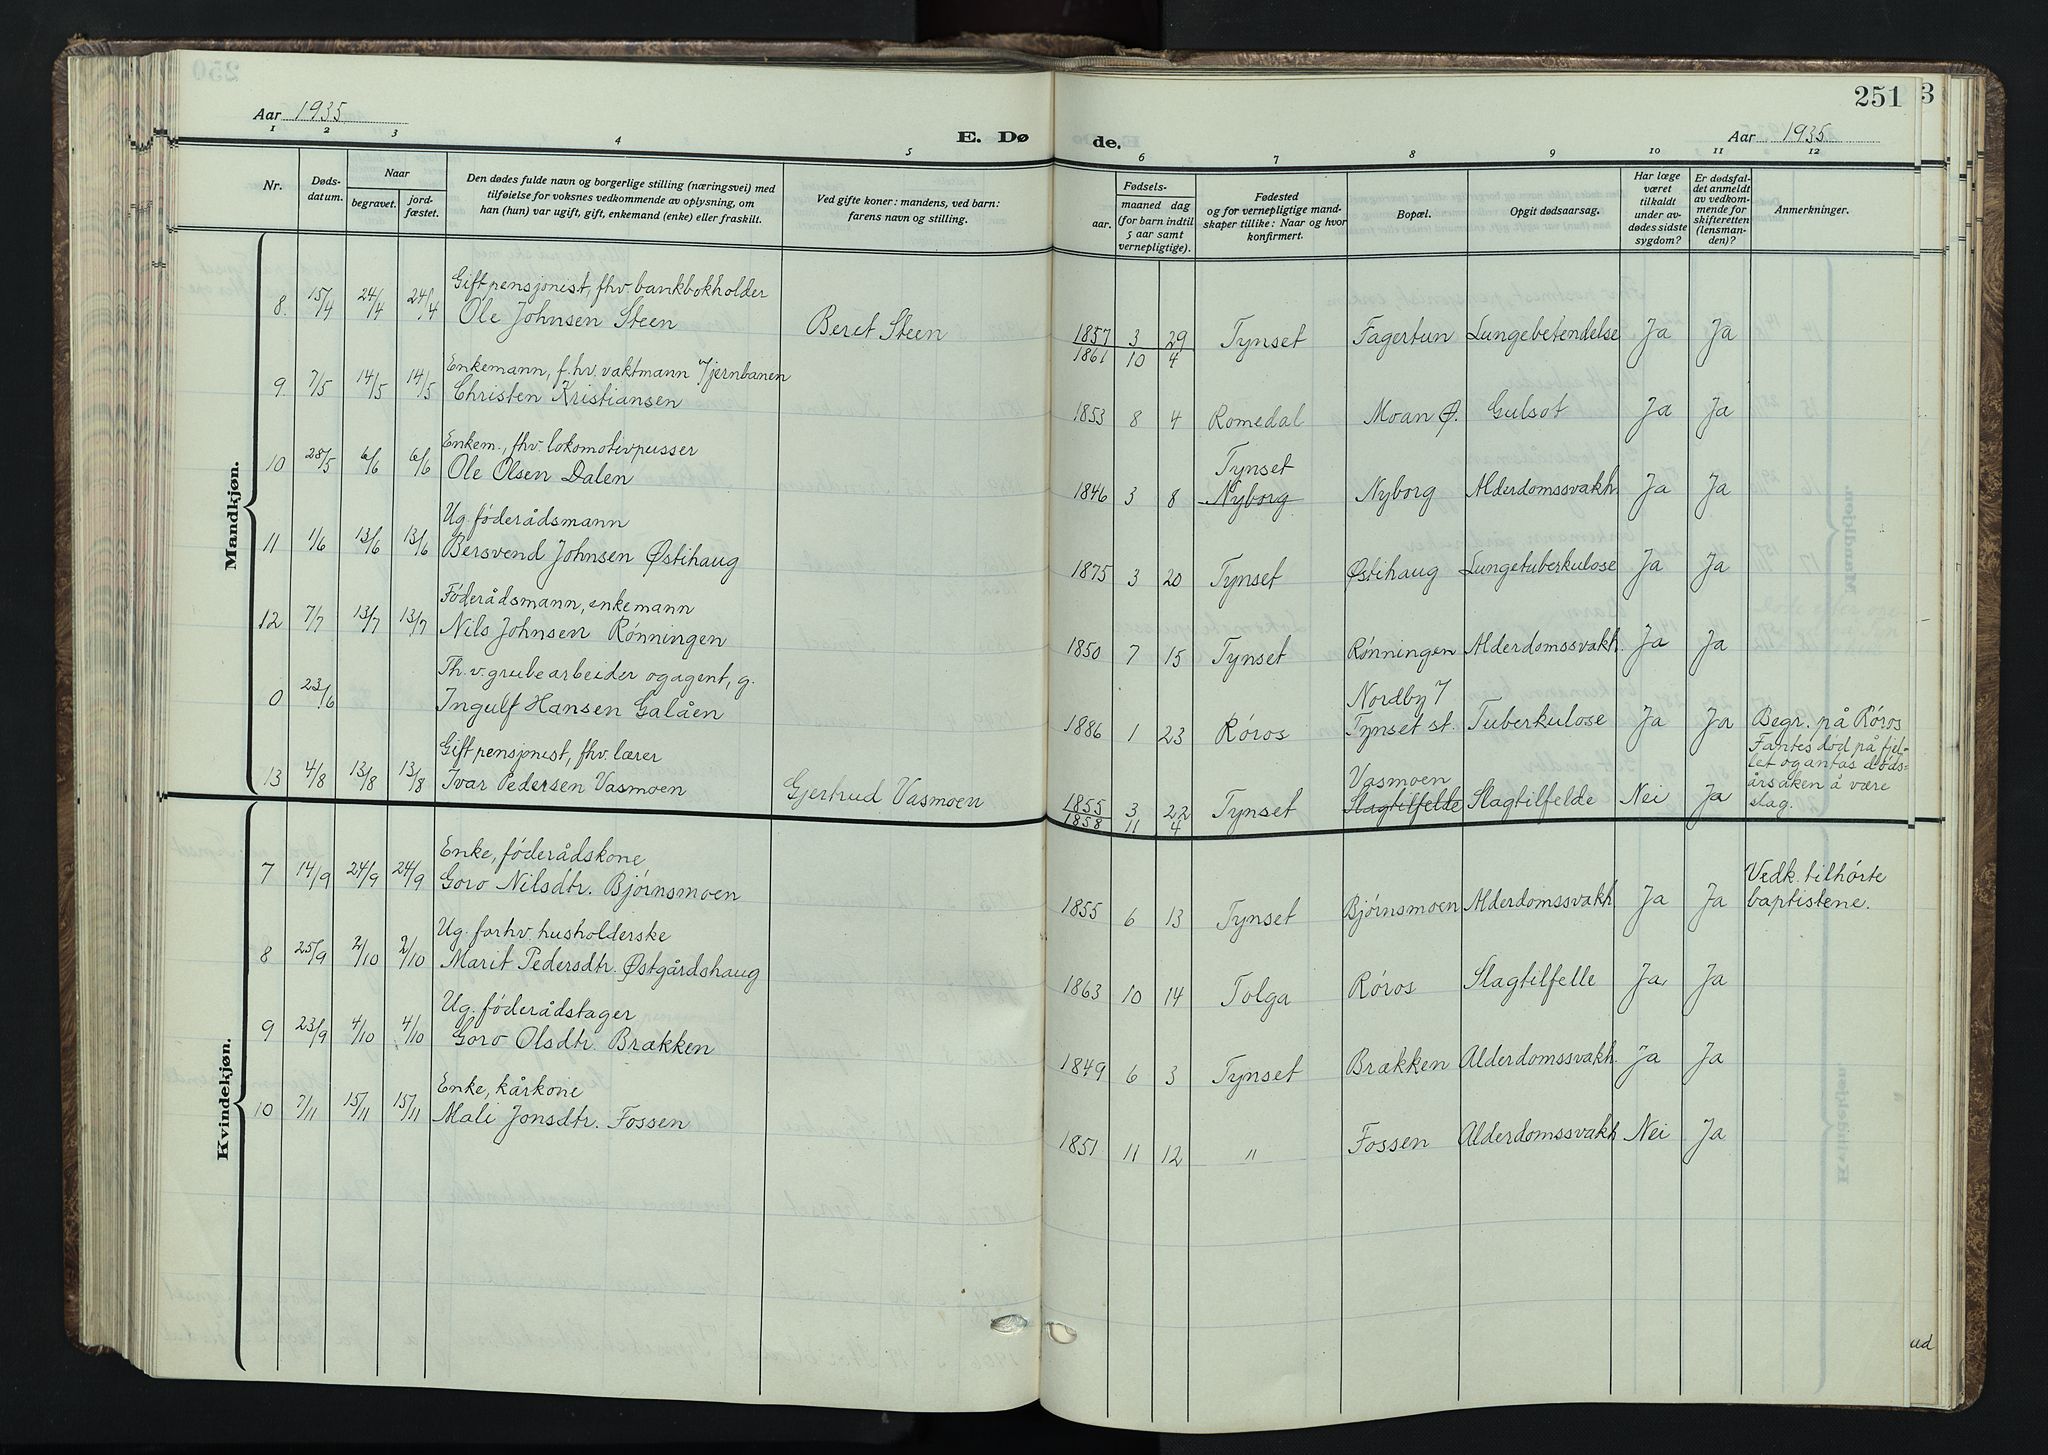 251
3
Aar 1935
E. Dø
de.
Aar 1935
1 2 3 4 5 6 7 8 9 10 11 12
Nr.
Døds-
datum.
Naar
begravet.
jord-
fæstet.
Den dødes fulde navn og borgerlige stilling (næringsvei) med
tilføielse for voksnes vedkommende av oplysning, om
han (hun) var ugift, gift, enkemand (enke) eller fraskilt.
Ved gifte koner: mandens, ved barn:
farens navn og stilling.
Fødsels-
aar.
maaned dag
(for barn indtil
5 aar samt
vernepligtige).
Fødested
og for vernepligtige mand-
skaper tillike: Naar og hvor
konfirmert.
Bopæl.
Opgit dødsaarsag.
Har læge
været
tilkaldt
under av-
dødes sidste
sygdom?
Er dødsfal-
det anmeldt
av vedkom-
mende for
skifteretten
(lensman-
den)?
Anmerkninger.
Mandkjøn.
Gift pensjonist, fhv. bankbokholder
8. 15/4 24/4 24/4 Ole Johnsen Steen Beret Steen 1857 3 29 Tynset Fagertun Lungebetendelse Ja Ja
1861 10 4
Enkemann, f.hv. vaktmann v/jernbanen
9. 7/5 14/5 14/5 Christen Kristiansen 1853 8 4 Romedal Moan Ø. Gulsot Ja Ja
Enkem., fhv. lokomotivpusser Tynset
10 28/5 6/6 6/6 Ole Olsen Dalen 1846 3 8 Nyborg Nyborg Alderdomssvakh. Ja Ja
Ug. föderådsmann
11 1/6 13/6 13/6 Bersvend Johnsen Østihaug 1875 3 20 Tynset Østihaug Lungetuberkulose Ja Ja
Föderådsmann, enkemann
12 7/7 13/7 13/7 Nils Johnsen Rønningen 1850 7 15 Tynset Rønningen Alderdomssvakh. Ja Ja
Fh.v. grubearbeider og agent, g. Nordby v/
0 23/6 Ingulf Hansen Galåen 1886 1 23 Røros Tynset st. Tuberkulose Ja Ja Begr. på Røros
Gift pensjonist, fhv. lærer Vasmoen
13 4/8 13/8 13/8 Ivar Pedersen Vasmoen Gjertrud Vasmoen 1855 3 22 Tynset Slagtilfelde Slagtilfelde Nei Ja
1858 11 4
Fantes död på fjel-
let og antas døds-
årsaken å være
slag.
Kvindekjøn.
Enke, föderådskone
7 14/9 24/9 24/9 Goro Nilsdtr. Bjørnsmoen 1855 6 13 Tynset Bjørnsmoen Alderdomssvakh. Ja Ja
Vedk. tilhørte
baptistene.
Ug. forhv. husholderske
8 25/9 2/10 2/10 Marit Pedersdtr. Østgårdshaug 1863 10 14 Tolga Røros Slagtilfelle Ja Ja
Ug. föderådstager
9 23/9 4/10 4/10 Goro Olsdtr. Brækken 1849 6 3 Tynset Brækken Alderdomssvakh. Ja Ja
Enke, kårkone
10 7/11 15/11 15/11 Mali Jonsdtr. Fossen 1851 11 12 " Fossen Alderdomssvakh. Nei Ja
ud